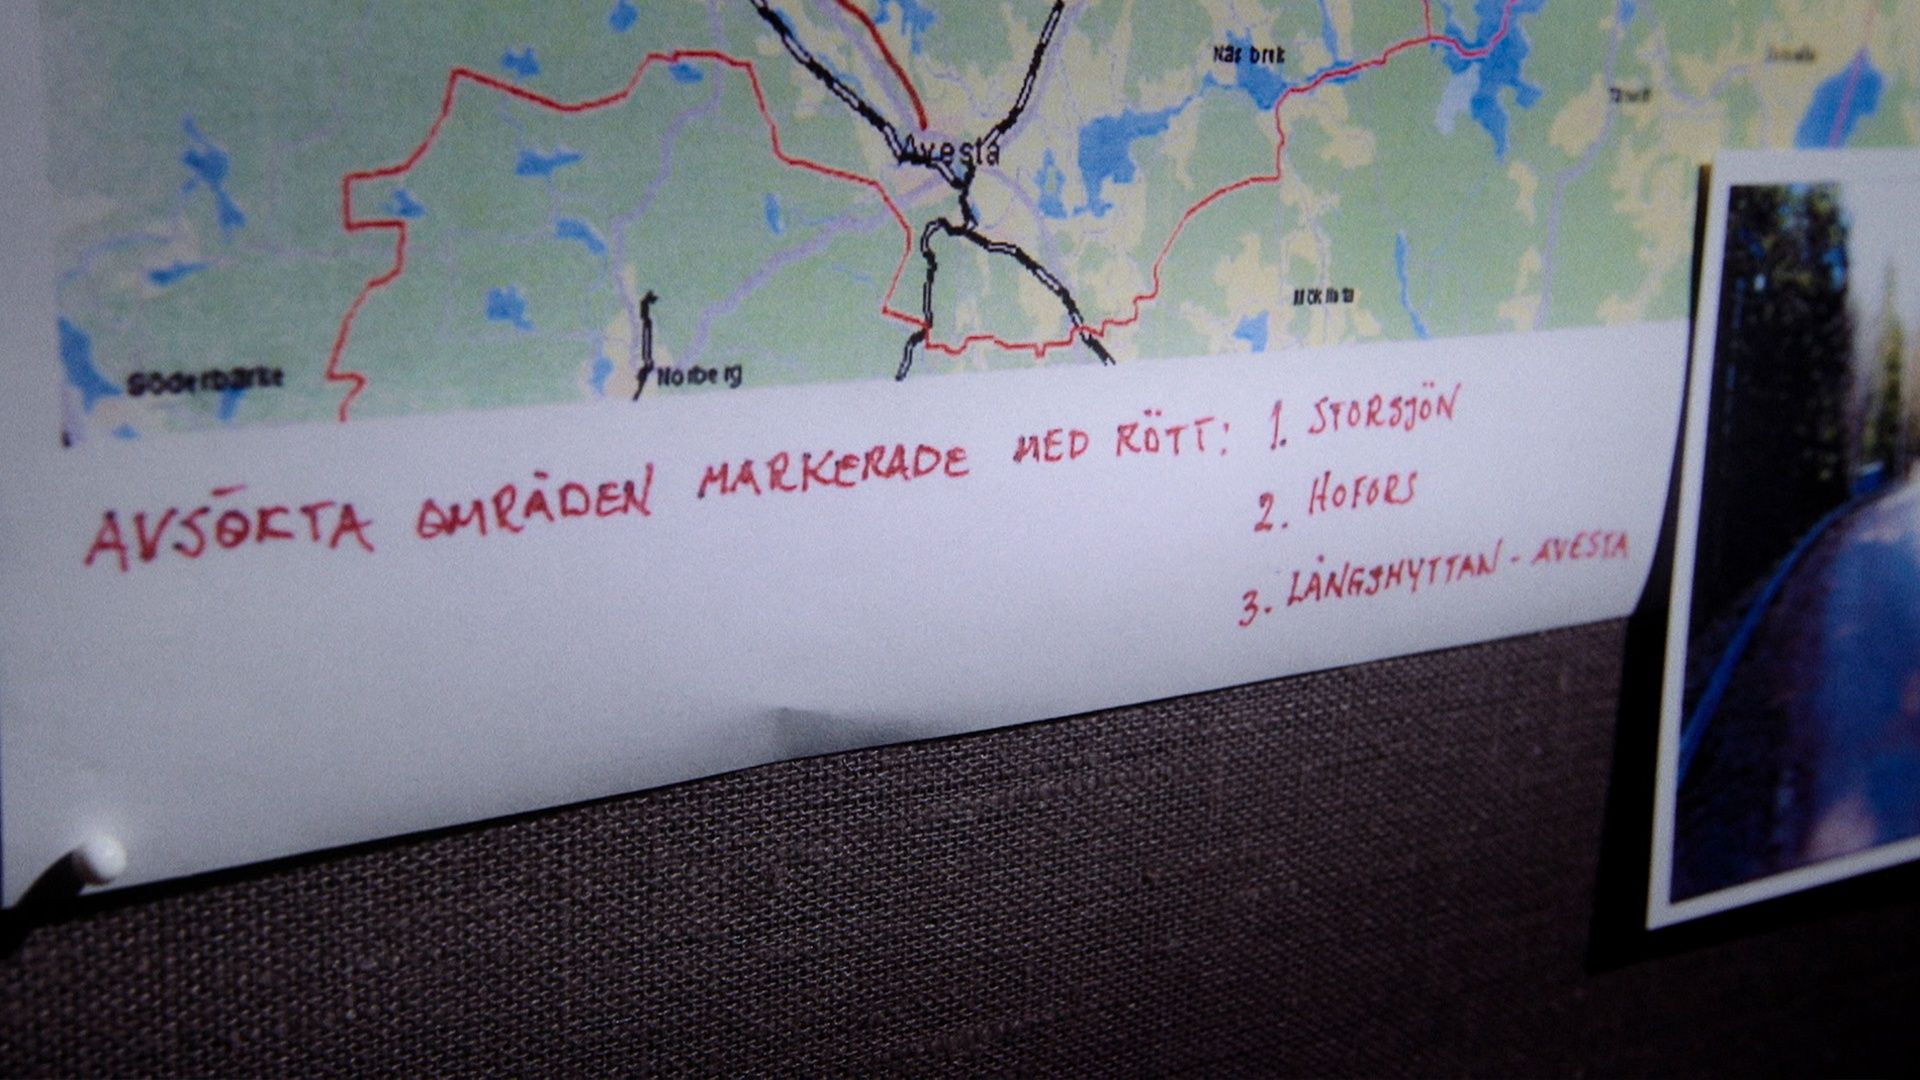 Avesta
Söderbärke
Norberg
AVSÖKTA OMRÅDEN MARKERADE MED RÖTT: 1. STORSJÖN
2. HOFORS
3. LÅNGSHYTTAN - AVESTA